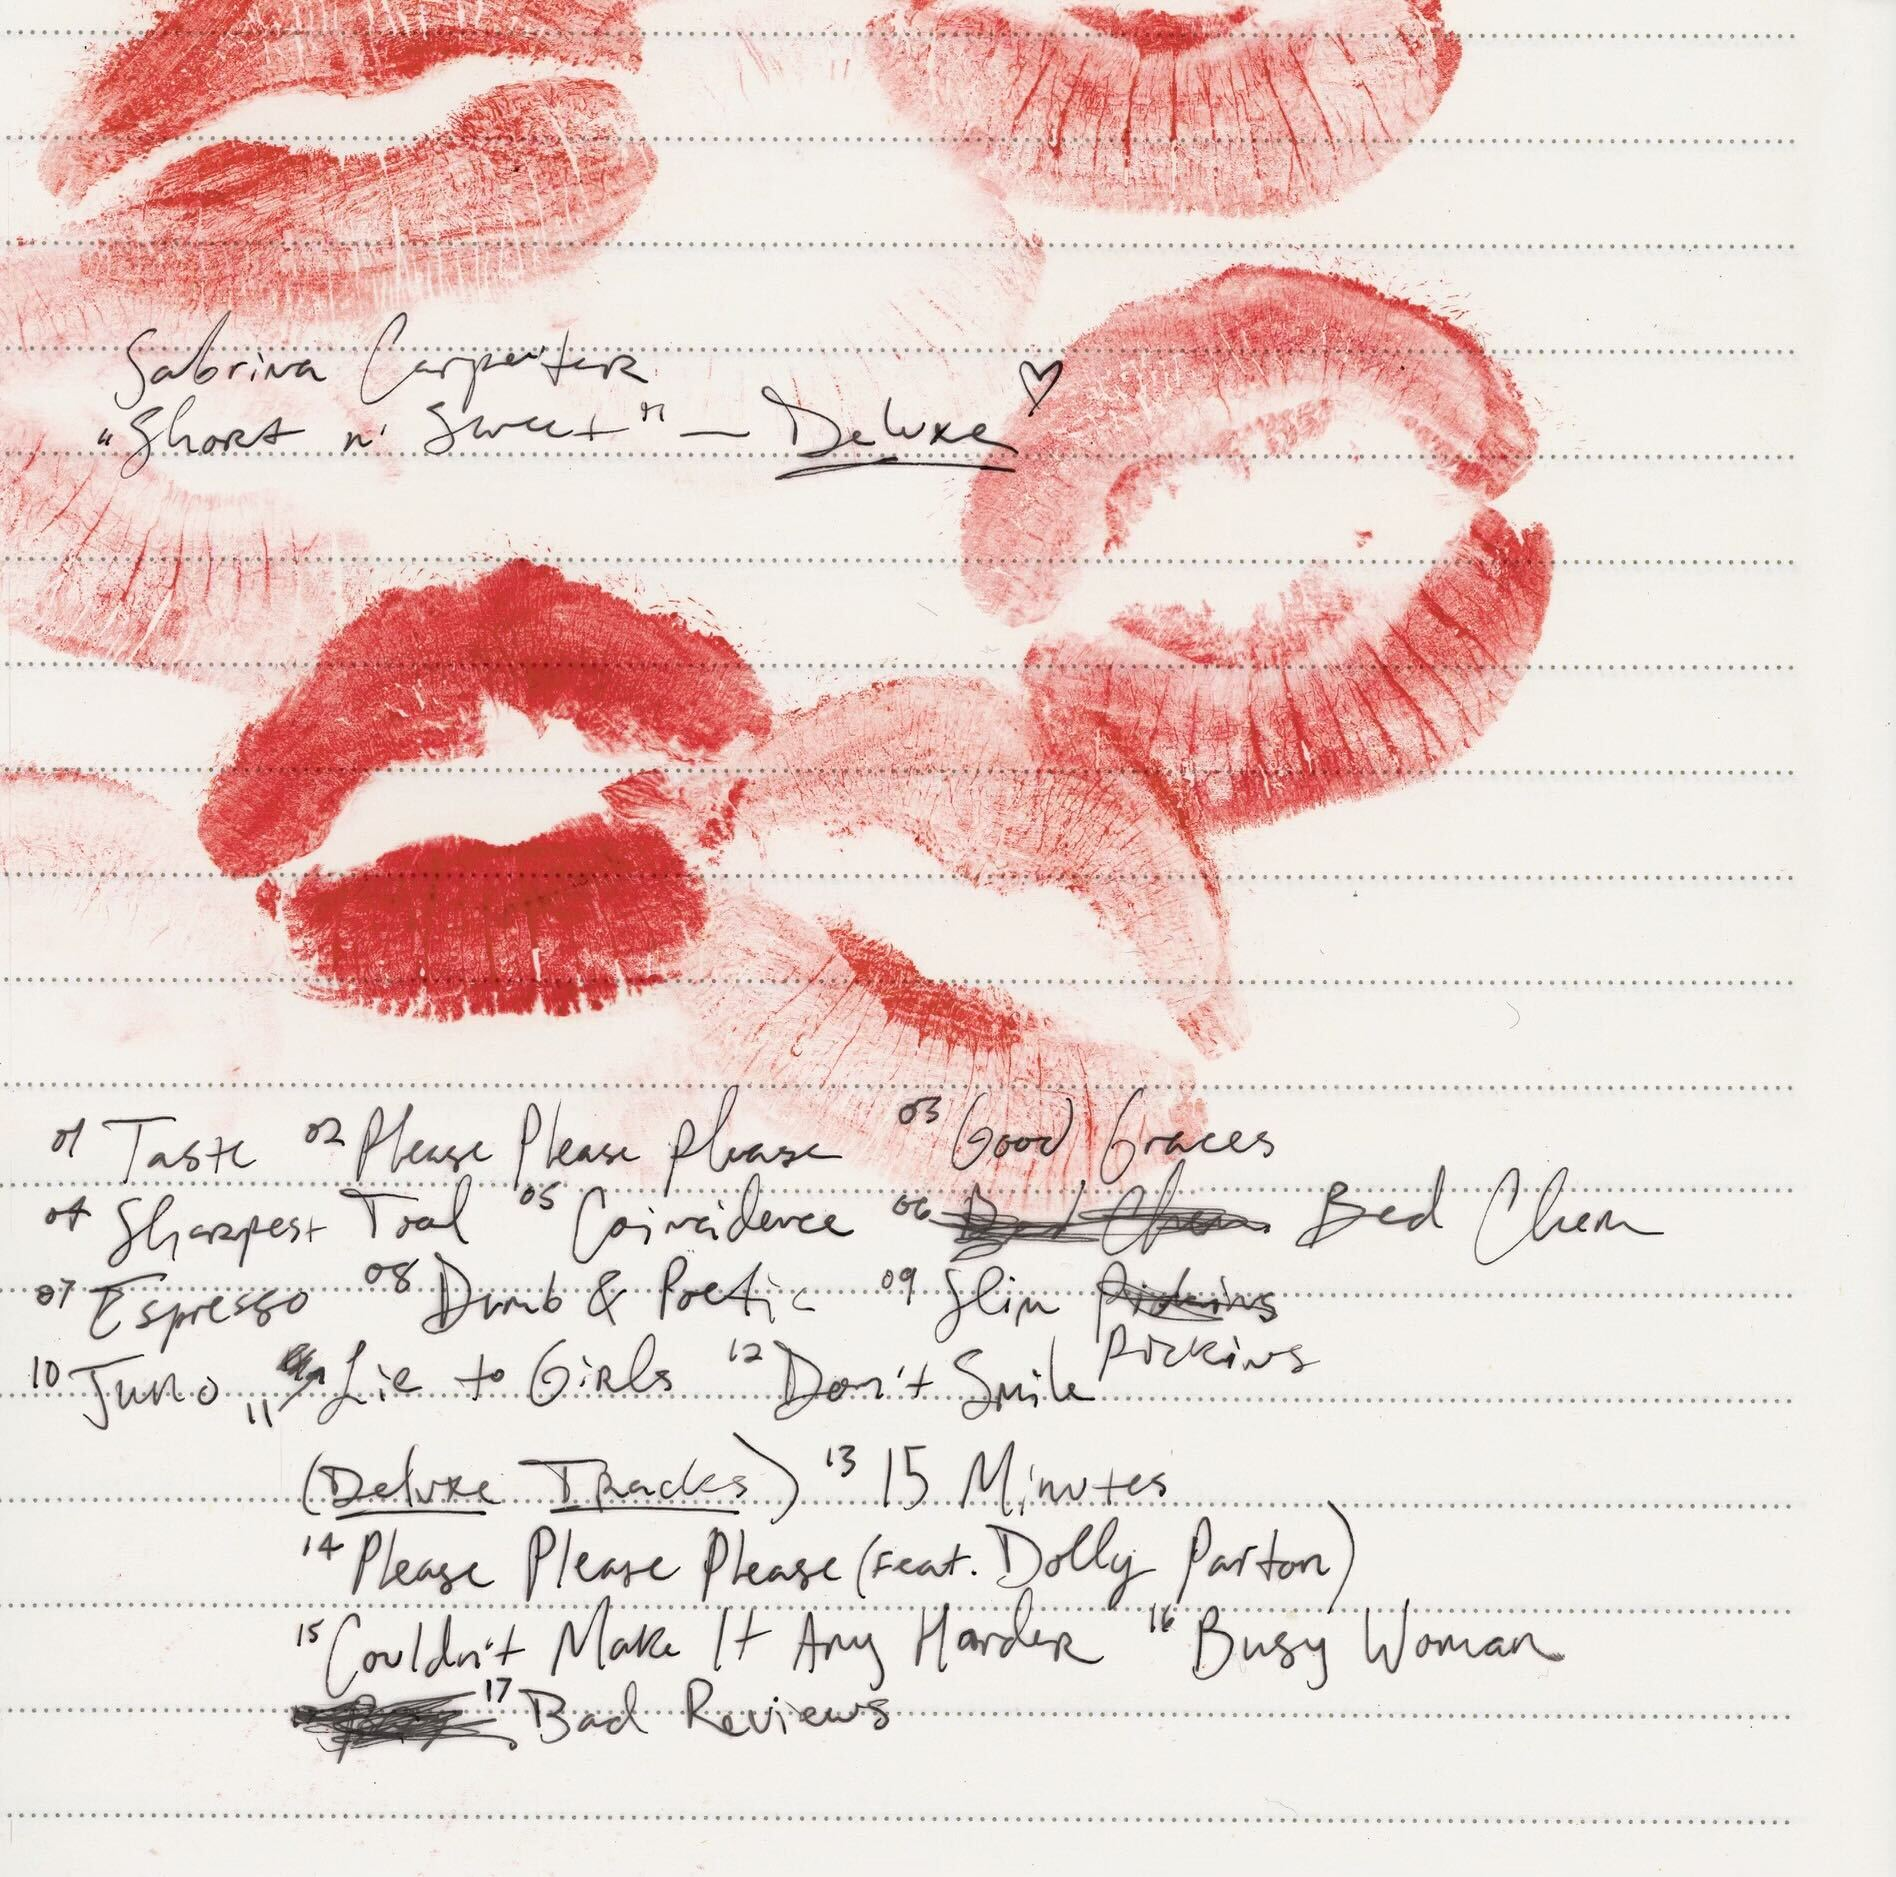 Sabrina Carpenter
"Short n' Sweet" — Deluxe ♡
01 Taste 02 Please Please Please 03 Good Graces
04 Sharpest Tool 05 Coincidence 06 Bed Chem
07 Espresso 08 Dumb & Poetic 09 Slim Pickins
Pickins
10 Juno 11 Lie to Girls 12 Don't Smile
(Deluxe Tracks) 13 15 Minutes
14 Please Please Please (feat. Dolly Parton)
15 Couldn't Make It Any Harder 16 Busy Woman
17 Bad Reviews